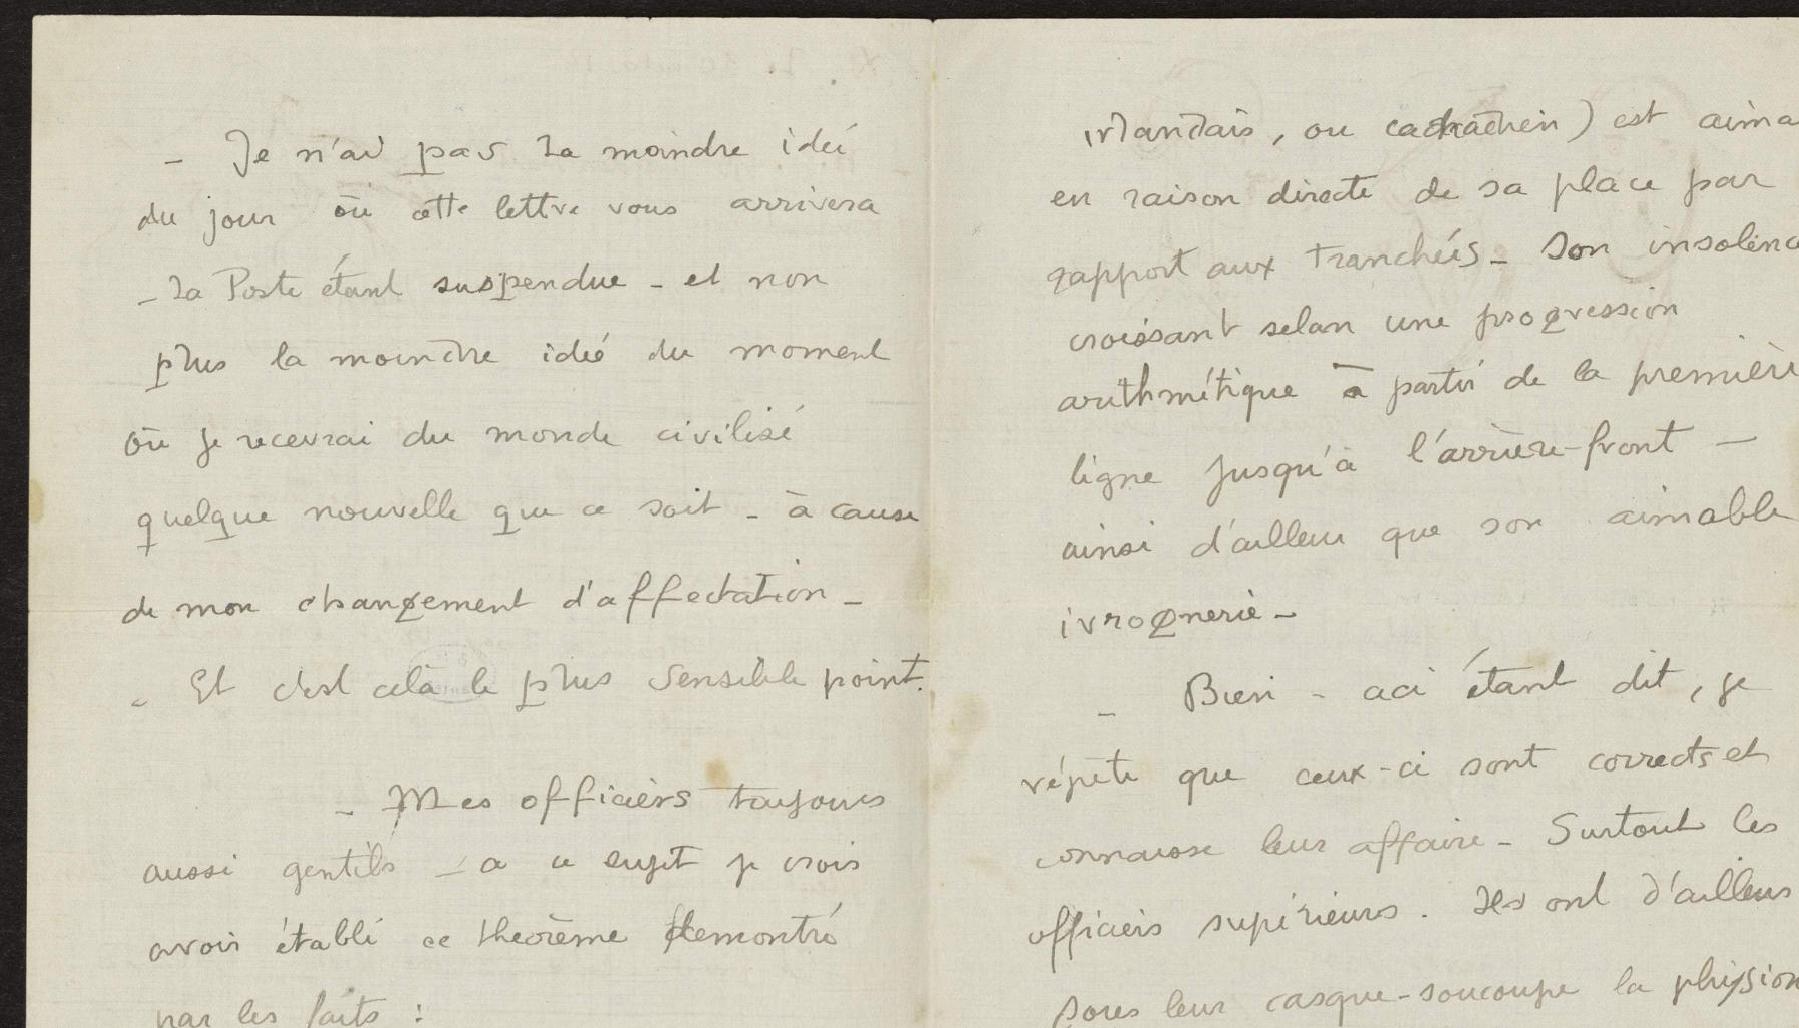 _ Je n'ai pas la moindre idée
du jour où cette lettre vous arrivera
_ la Poste étant suspendue _ et non
plus la moindre idée du moment
où je recevrai du monde civilisé
quelque nouvelle que ce soit _ à cause
de mon changement d'affectation _
_ Et c'est celà le plus sensible point.
_ Mes officiers toujours
aussi gentils _ a ce sujet je crois
avoir établi ce théorème démontré
par les faits :
irlandais, ou ) est aima
en raison directe de sa place par
rapport aux tranchées _ Son insolenc
croissant selon une progression
arithmétique à partir de la premièr
ligne jusqu'à l'arrière-front _
ainsi d'ailleur que son aimable
ivrognerie _
_ Bien - ceci étant dit, je
répète que ceux-ci sont corrects et
connaisse leur affaire _ Surtout les
officiers supérieurs. Ils ont d'ailleurs
sous leur casque-soucoupe la physion